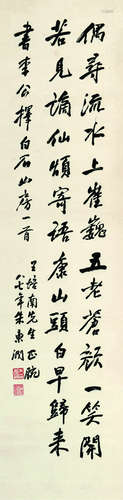 偶寻流水上崔巍五老苍颜一笑开
若见谪仙烦寄语康山头白早归来
书李公择白石山房一首
王培南先生正腕
八七年朱东润